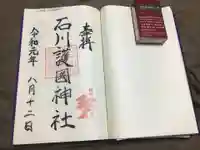 奉拝
石川護國神社
令和元年八月十二日